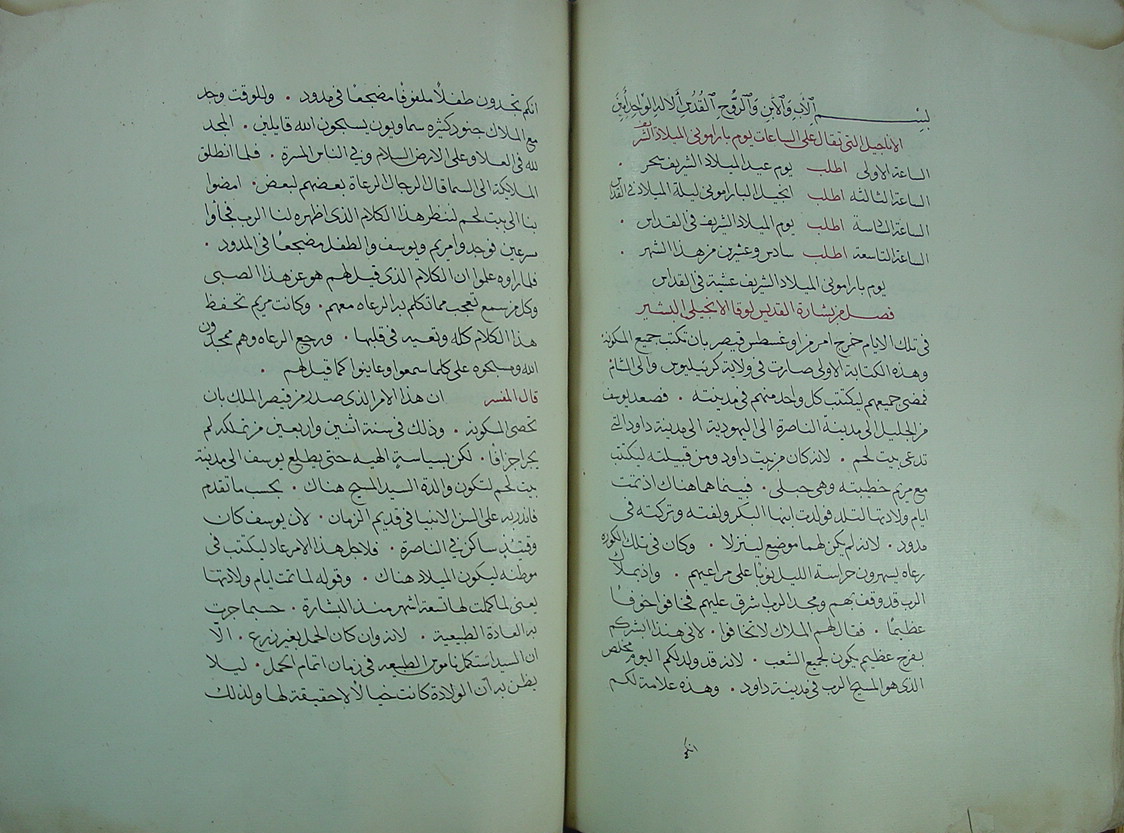 بسم الاب والابن والروح القدس الاله الواحد امين
الاناجيل التي تقال على الساعات يوم بارامونى الميلاد الشريف
الساعة الاولى اطلب يوم عيد الميلاد الشريف سحر .
الساعة الثالثه اطلب انجيل البارامونى ليلة الميلاد في القداس
الساعة السادسة اطلب يوم الميلاد الشريف في القداس .
الساعة التاسعة اطلب سادس وعشرين من هذا الشهر .
يوم بارامونى الميلاد الشريف عشية في القداس
فصل من بشارة القديس لوقا الانجيلى البشير
في تلك الايام خرج امر من اوغسطس قيصر بان تكتب جميع المسكونة
وهذه الكتابة الاولى صارت في ولاية كرينيليوس والى الشام
فمضى جميعهم ليكتتب كل واحد منهم في مدينته . فصعد يوسف
من الجليل الى مدينة الناصرة الى اليهودية الى مدينة داود التى
تدعى بيت لحم . لانه كان من بيت داود ومن قبيلته ليكتتب
مع مريم خطيبته وهي حبلى . فبينما هما هناك اذ تمت
ايام ولادتها لتلد فولدت ابنها البكر ولفته وتركته في
مدود . لانه لم يكن لهما موضع لينزلا . وكان في تلك الكوره
رعاه يسهرون حراسة الليل نوبا على مراعيهم . واذ بملاك
الرب قد وقف بهم ومجد الرب اشرق عليهم فخافوا خوفا
عظيما . فقال لهم الملاك لا تخافوا . لانى هنذا ابشركم
بفرح عظيم يكون لجميع الشعب . لانه قد ولد لكم اليوم مخلص
الذى هو المسيح الرب في مدينة داود . وهذه علامة لكم
انكم
انكم تجدون طفلا ملفوفا مضجعا في مدود . وللوقت وجد
مع الملاك جنود كثيره سماويون يسبحون الله قايلين . المجد
لله في العلا وعلى الارض السلام وفي الناس المسرة . فلما انطلق
الملايكة الى السما قال الرجال الرعاة بعضهم لبعض . امضوا
بنا الى بيت لحم لننظر هذا الكلام الذى اظهره لنا الرب فجاوا
سرعين فوجدوا مريم ويوسف والطفل مضجعا في المدود .
فلما راوه علموا ان الكلام الذى قيل لهم هو عن هذا الصبى
وكل من سمع تعجب مما تكلم به الرعاه معهم . وكانت مريم تحفظ
هذا الكلام كله وتعيه في قلبها . ورجع الرعاه وهم يمجدون
الله ويسبحوه على كلما سمعوا وعاينوا كما قيل لهم .
قال المفسر ان هذا الامر الذى صدر من قيصر الملك بان
تحصى المسكونة . وذلك في سنة اثنين واربعين من تملكه لم
يجر اجزافا . لكن بسياسة الهيه حتى يطلع يوسف الى مدينة
بيت لحم لتكون والدة السيد المسيح هناك . بحسب ما تقدم
فانذر به على السن الانبيا في قديم الزمان . لان يوسف كان
وقتئذ ساكن في الناصرة . فلاجل هذا الامر عاد ليكتتب في
موطنه ليكون الميلاد هناك . وقوله لما تمت ايام ولادتها
يعني لما كملت لها تسعة اشهر منذ البشارة . حسبما جرت
به العادة الطبيعية . لانه وان كان الحمل بغير زرع . الا
ان السيد استكمل ناموس الطبيعه في زمان اتمام الحمل . ليلا
يظن به ان الولادة كانت خيالا لا حقيقة لها ولذلك